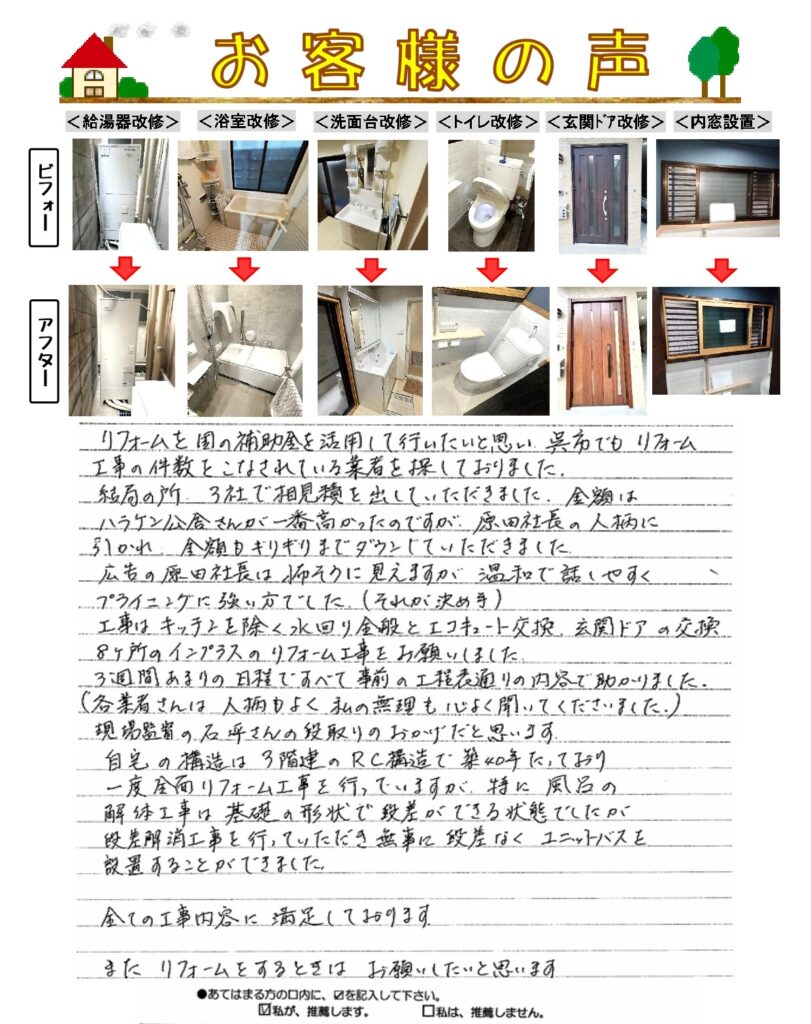 お客様の声
＜給湯器改修＞ ＜浴室改修＞ ＜洗面台改修＞ ＜トイレ改修＞ ＜玄関ﾄﾞｱ改修＞ ＜内窓設置＞
ビフォー
アフター
リフォームを国の補助金を活用して行いたいと思い、呉市でも リフォーム
工事の件数をこなされている業者を探しておりました。
結局の所、3社で相見積を出していただきました。金額は
ハラケン公舎さんが一番高かったのですが、原田社長の人柄に
引かれ、金額もギリギリまでダウンしていただきました
広告の原田社長は怖そうに見えますが 温和で話しやすく
プライニングに強い方でした。(それが決め手)
工事はキッチンを除く水回り全般とエコキュート交換、玄関ドアの交換
8ヶ所のインプラスのリフォーム工事をお願いしました。
3週間あまりの日程ですべて事前の工程表通りの内容で助かりました。
(各業者さんは人柄もよく私の無理も心よく聞いてくださいました。)
現場監督の石坪さんの段取りのおかげだと思います
自宅の構造は3階建のRC構造で築40年たっており
一度全面リフォーム工事を行っていますが、特に風呂の
解体工事は基礎の形状で段差ができる状態でしたが
段差解消工事を行っていただき無事に段差なくユニットバスを
設置することができました。
全ての工事内容に満足しております
また リフォームをするときは お願いしたいと思います
●あてはまる方の口内に、☑を記入して下さい。
☑私が、推薦します。 □私は、推薦しません。